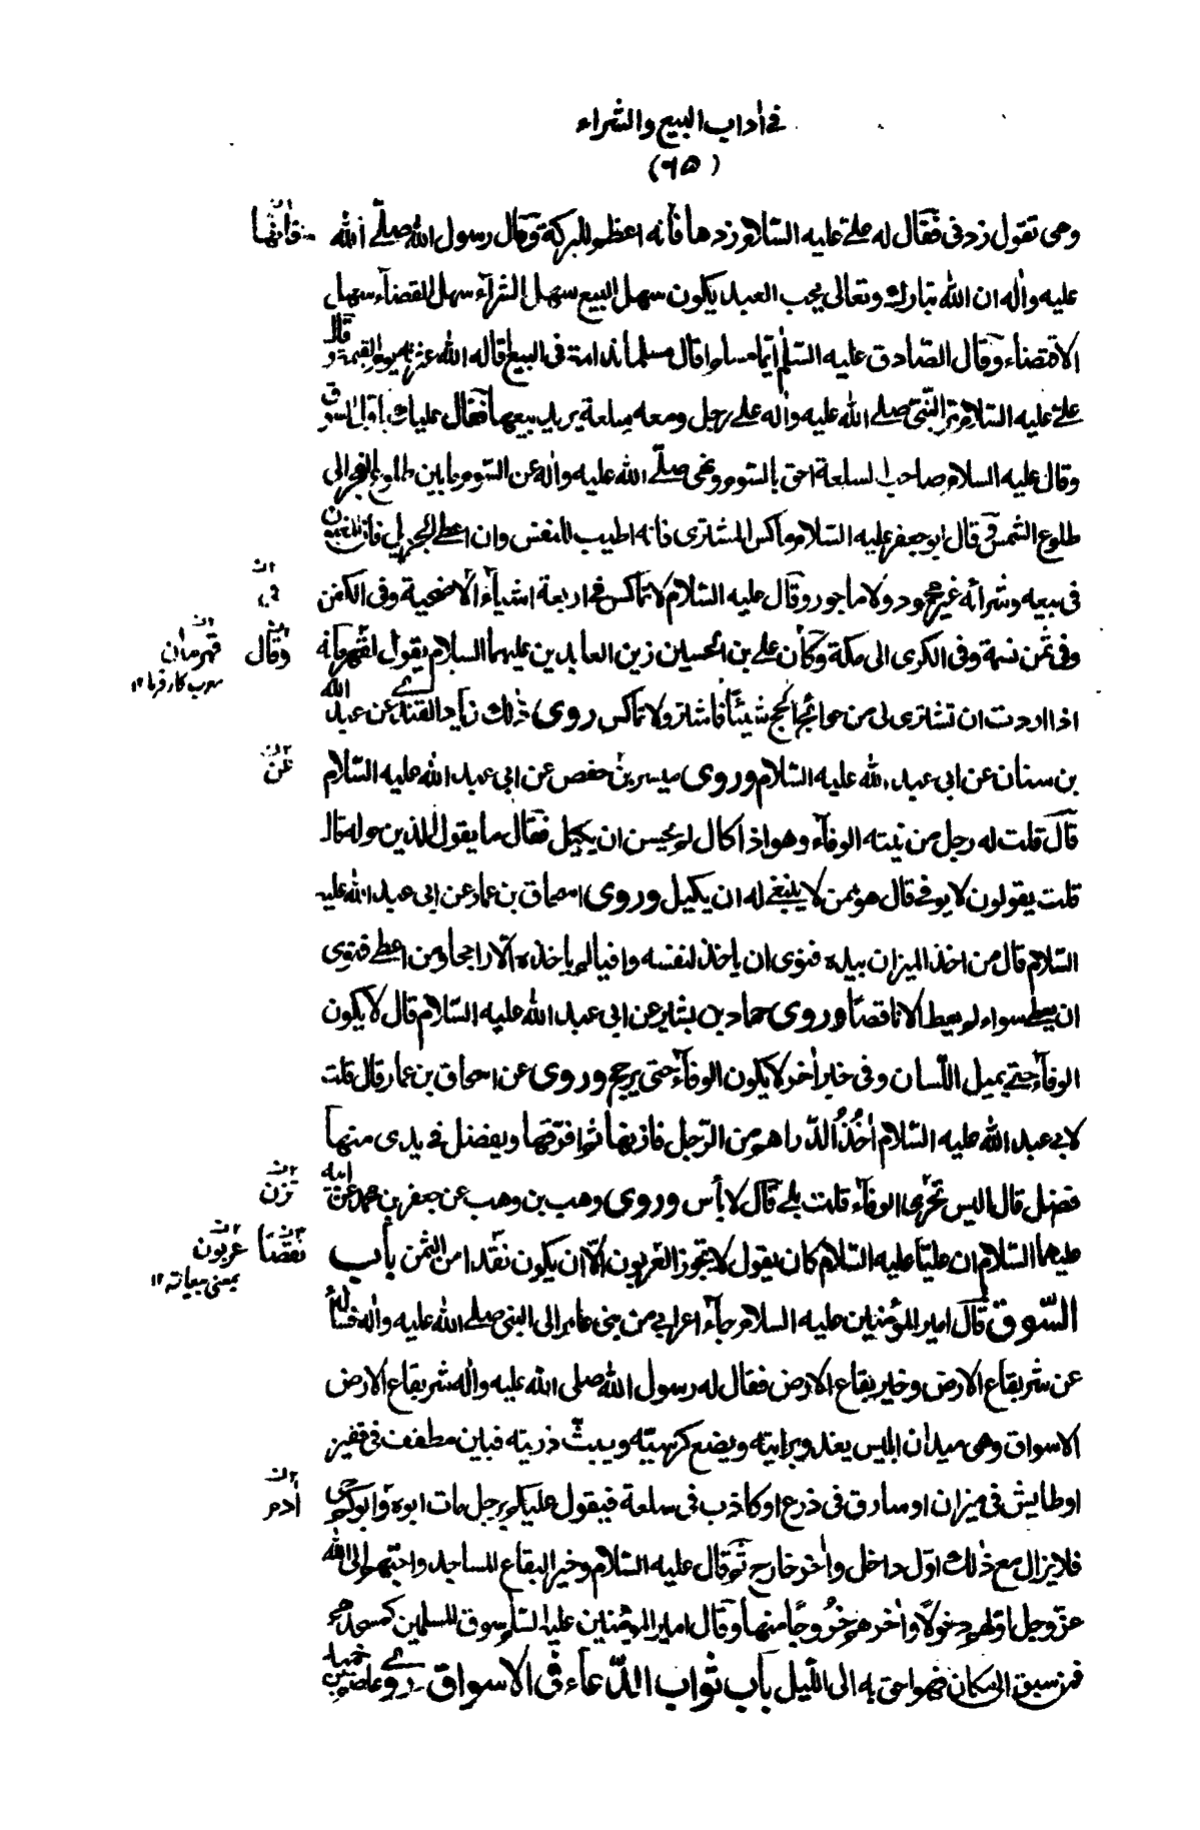 في اداب البيع والشراء
(٦٥)
وهى تقول زدنى فقال له على عليه السّلام زدها فانه اعظم للبركة وقال رسول الله صلّى الله فانها
عليه واله ان الله تبارك وتعالى يحب العبد يكون سهل البيع سهل الشراء سهل القضاء سهل
الاقتضاء وقال الصّادق عليه السّلم ايّما مسلم اقال مسلما ندامة فى البيع اقاله الله عثرته يوم القيمة وقال
على عليه السّلام مرّ النّبى صلى الله عليه واله على رجل ومعه سلعة يريد بيعها فقال عليك باوّل السّوق
وقال عليه السلام صاحب السلعة احق بالسّوم ونهى صلّى الله عليه واله عن السّوم ما بين طلوع الفجر الى
طلوع الشّمس وقال ابو جعفر عليه السّلام ماكس المشترى فانه اطيب للنفس وان اعطى الجزيل فان المغبون
فى بيعه وشرائه غير محمود ولا ماجور وقال عليه السّلام لا تماكس فى اربعة اشياء الاضحية وفى الكفن فى
وفى ثمن نسمة وفى الكرى الى مكة وكان على بن الحسين زين العابدين عليهما السلام يقول لقهرمانه وقال قهرمان
معرب كارفرما ١٢
اذا اردت ان تشترى لى من حوائج الحج شيئا فاشتر ولا تماكس روى ذلك زياد القندى عن عبد الله
بن سنان عن ابى عبد الله عليه السّلام وروى ميسر بن حفص عن ابى عبد الله عليه السّلام عن
قال قلت له رجل من نيته الوفاء وهو اذا كال لم يحسن ان يكيل فقال ما يقول الذين حوله قال
قلت يقولون لا يوفى قال هو ممن لا ينبغى له ان يكيل وروى اسحاق بن عمار عن ابى عبد الله عليه
السّلام قال من اخذ الميزان بيده فنوى ان ياخذ لنفسه وافيا لم ياخذه الّا راجحا ومن اعطى فنوى
ان يعطى سواء لم يعط الا ناقصا وروى حماد بن بشير عن ابى عبد الله عليه السّلام قال لا يكون
الوفاء حتى يميل اللّسان وفى خبر اخر لا يكون الوفاء حتى يرجح وروى عن اسحاق بن عمار قال قلت
لابى عبد الله عليه السّلام اٰخُذُ الدّراهم من الرّجل فازنها ثم افرّقها ويفضل فى يدى منها
فضل قال اليس تحرّى الوفاء قلت بلى قال لا بأس وروى وهب بن وهب عن جعفر بن محمد عن ابيه تزن
عليهما السّلام ان عليّا عليه السّلام كان يقول لا يجوز العربون الّا ان يكون نقدا من الثمن باب نقصا عربون
بمعنى بيعانه ١٢
السّوق قال امير المؤمنين عليه السلام جاء اعرابى من بنى عامر الى النبى صلى الله عليه واله فسأله
عن شر بقاع الارض وخير بقاع الارض فقال له رسول الله صلى الله عليه واله شر بقاع الارض
الاسواق وهى ميدان ابليس يغدو برايته ويضع كرسيّه ويبثّ ذريته فبين مطفف فى قفيز
او طايش فى ميزان او سارق فى ذرع او كاذب فى سلعة فيقول عليكم برجل مات ابوه وابوكم حى ادم
فلا يزال مع ذلك اوّل داخل واٰخر خارج ثم قال عليه السّلام وخير البقاع المساجد واحبهم الى الله
عزّ وجل اوّلهم دخولًا واٰخرهم خُرُوجًا منها وقال امير المؤمنين عليه السّلم سوق المسلمين كمسجدهم
فمن سبق الى مكان فهو احق به الى اللّيل باب ثواب الدّعاء فى الاسواق روى عاصم بن حميد